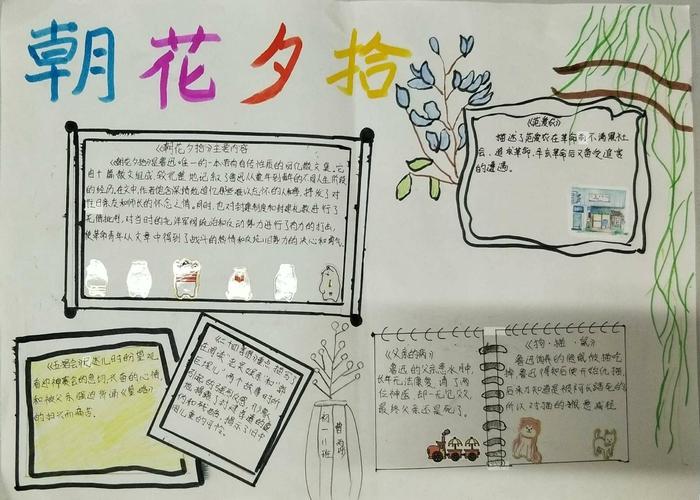 朝花夕拾
《朝花夕拾》主要内容
《朝花夕拾》是鲁迅唯一的一本带有自传性质的回忆散文集。它
由十篇散文组成,较完整地记录了鲁迅从童年到青年的不同人生阶段
的经历。在文中,作者饱含深情地追忆那些难以忘怀的人和事,抒发了对
性日亲友和师长的怀念之情。同时,也对封建制度和封建礼教进行了
无情批判,对当时的北洋军阀政治和反动势力进行了有力的打击,
使革命青年从文章中得到了战斗的热情和反抗旧势力的决心和勇气。
《范爱农》
描述了范爱农在革命前不满黑社
会、追求革命,辛亥革命后又备受迫害
的遭遇。
《五猖会》记述儿时盼望观
看迎神赛会的急切,兴奋的心情,
和被父亲强迫背诵《鉴略》
的扫兴而痛苦。
《二十四孝图》重点描写了
在阅读“老莱娱亲”和“郭
巨埋儿”两个故事时所
引起的强烈反感,
揭露了封建孝道的虚
伪和残酷,揭示了旧中
国儿童的可怜。
初一11班
《父亲的病》
鲁迅的父亲患水肿,
长年无法康复,请了两
位神医,却一无见效,
最终父亲还是死了。
《狗·猫·鼠》
鲁迅饲养的隐鼠被猫吃
掉,鲁迅得知后便开始仇猫,
后来才知道是被阿长踏死的
所以对猫的